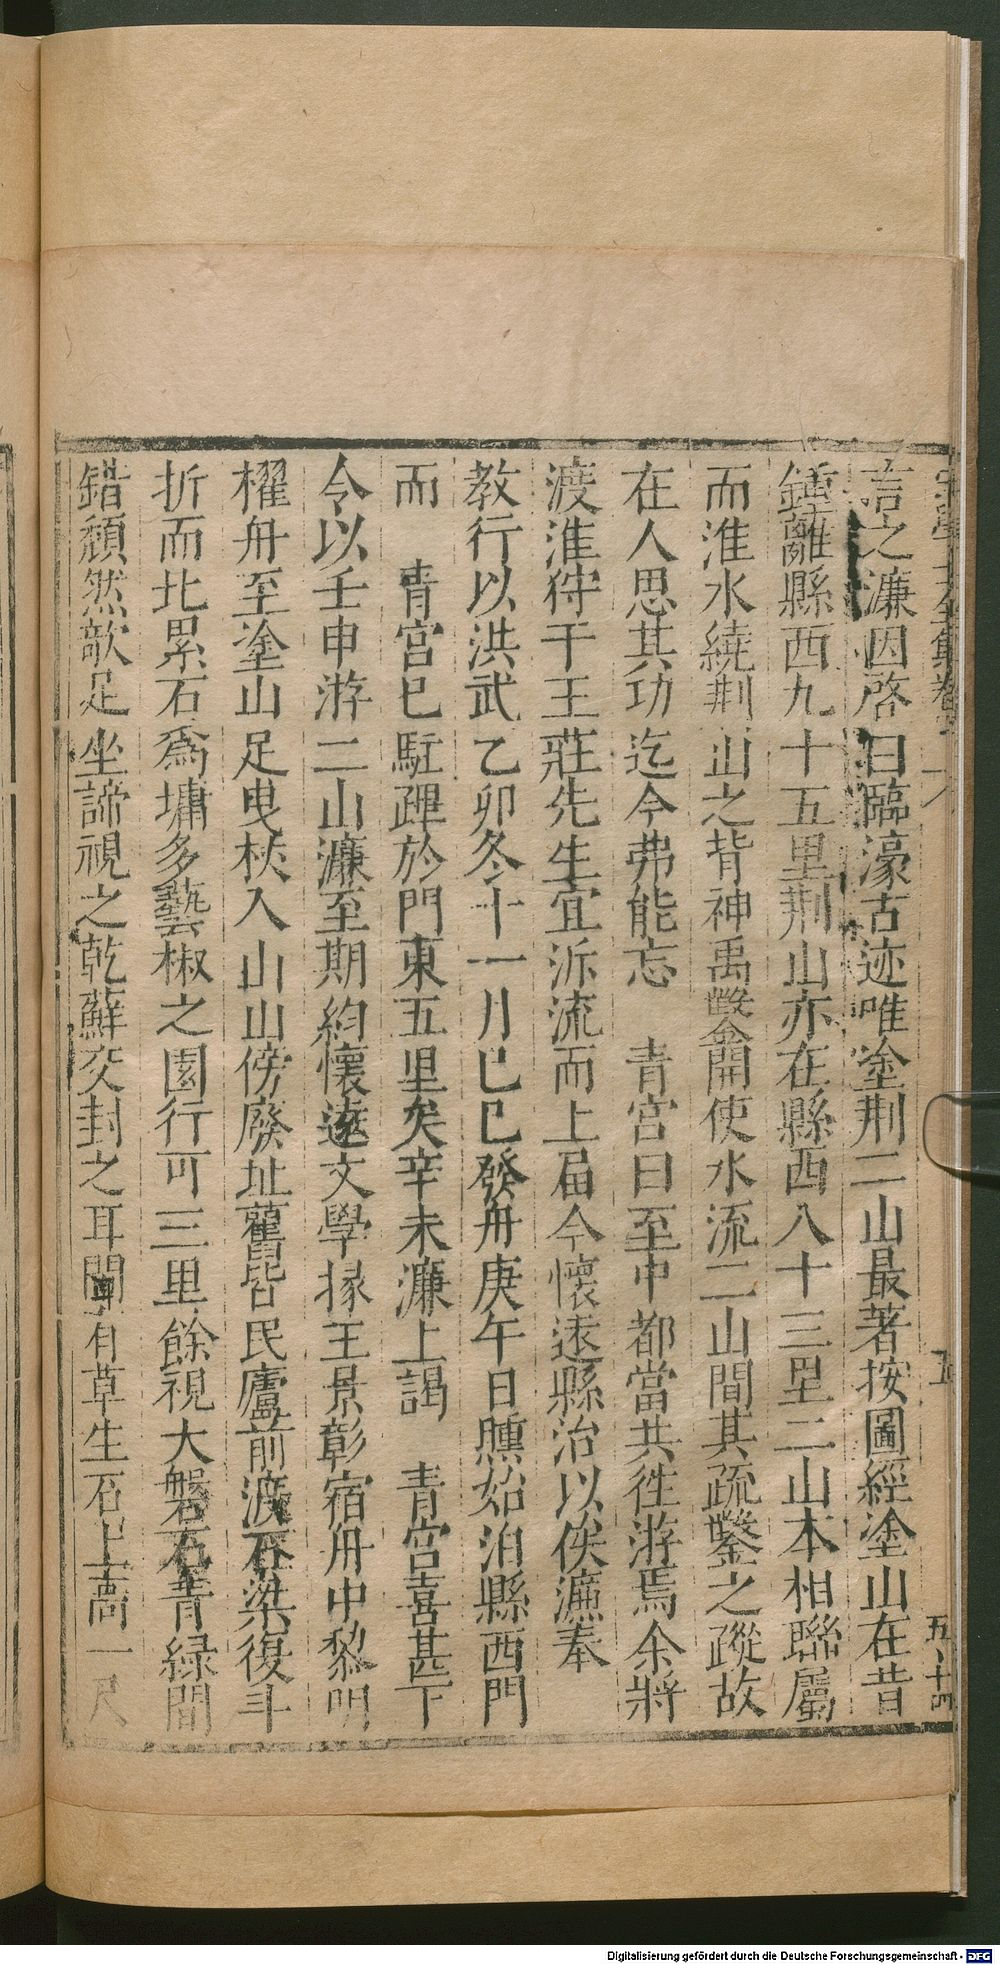 言之濂因啓曰臨濠古迹唯塗荆二山最著按圖經塗山在昔
鍾離縣西九十五里荆山亦在縣西八十三里二山本相聯屬
而淮水繞荆山之背神禹鑿開使水流二山間其疏鑿之蹤故
在人思其功迄今弗能忘　青宮曰至中都當共徃游焉余將
渡淮狩于王莊先生宜泝流而上届今懷逺縣治以俟濂奉
教行以洪武乙卯冬十一月已巳發舟庚午日曛始泊縣西門
而　青宮已駐蹕於門東五里矣辛未濂上謁　青宮喜甚下
令以壬申游二山濂至期約懷逺文學掾王景彰宿舟中黎明
櫂舟至塗山足曳杖入山山傍廢址舊皆民廬前渡石梁復斗
折而北累石爲墉多藝椒之園行可三里餘視大磐石青緑間
錯頽然欹足坐諦視之乾蘚交封之耳間有草生石上高一尺
五
五十四
Digitalisierung gefördert durch die Deutsche Forschungsgemeinschaft - DFG